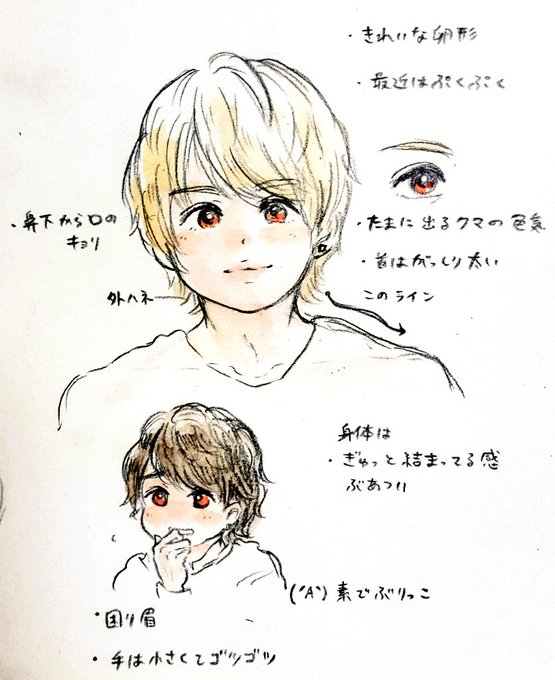 ・きれいな卵形
・最近はぷくぷく
・鼻下から口の
キョリ
・たまに出るクマの色気
・首はがっしり太い
外ハネ
このライン
身体は
・ぎゅっと結まってる感
ぶあつい
(´A`) 素でぶりっこ
・困り眉
・手は小さくてゴツゴツ